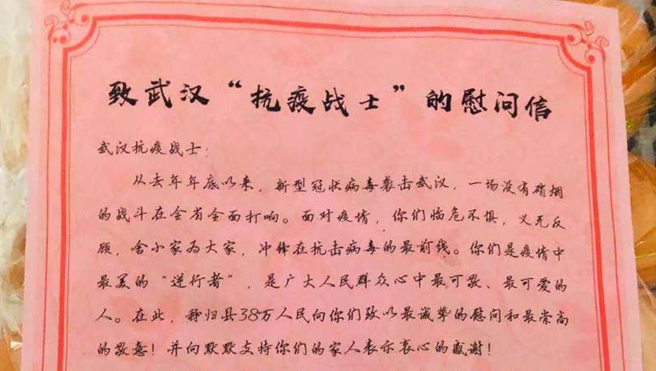 致武汉“抗疫战士”的慰问信
武汉抗疫战士：
从去年年底以来，新型冠状病毒袭击武汉，一场没有硝烟
的战斗在全省全面打响。面对疫情，你们临危不惧，义无反
顾，舍小家为大家，冲锋在抗击病毒的最前线。你们是疫情中
最美的“逆行者”，是广大人民群众心中最可敬、最可爱的
人。在此，秭归县38万人民向你们致以最诚挚的慰问和最崇高
的敬意！并向默默支持你们的家人表示衷心的感谢！